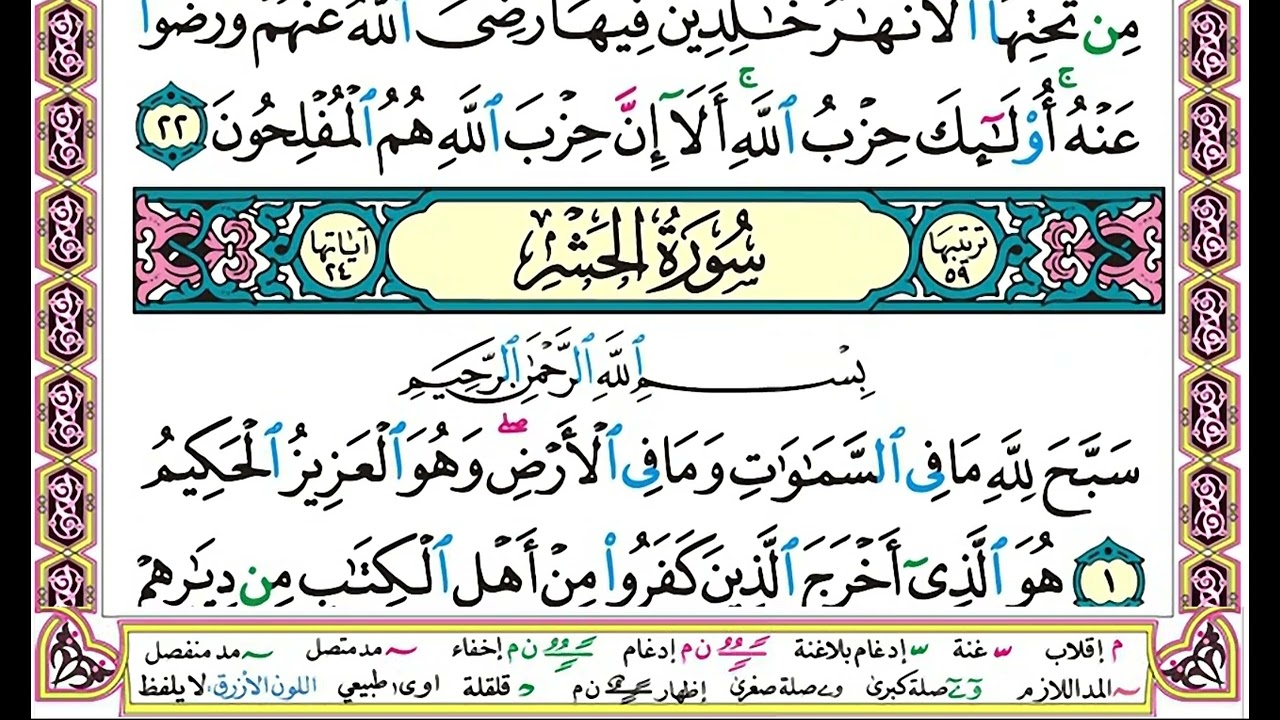 مِن تَحْتِهَا ٱلْأَنْهَٰرُ خَٰلِدِينَ فِيهَا رَضِىَ ٱللَّهُ عَنْهُمْ وَرَضُوا۟
عَنْهُ ۚ أُو۟لَٰٓئِكَ حِزْبُ ٱللَّهِ ۚ أَلَآ إِنَّ حِزْبَ ٱللَّهِ هُمُ ٱلْمُفْلِحُونَ ٢٢
ترتيبها ٥٩ سُورَةُ الحَشْرِ آياتها ٢٤
بِسْمِ ٱللَّهِ ٱلرَّحْمَٰنِ ٱلرَّحِيمِ
سَبَّحَ لِلَّهِ مَا فِى ٱلسَّمَٰوَٰتِ وَمَا فِى ٱلْأَرْضِ ۖ وَهُوَ ٱلْعَزِيزُ ٱلْحَكِيمُ
١ هُوَ ٱلَّذِىٓ أَخْرَجَ ٱلَّذِينَ كَفَرُوا۟ مِنْ أَهْلِ ٱلْكِتَٰبِ مِن دِيَٰرِهِمْ
م إقلاب غنة إدغام بلاغنة ن م إدغام ن م إخفاء مد متصل مد منفصل
المد اللازم صلة كبرى صلة صغرى إظهار ن م قلقلة د اوى طبيعي اللون الأزرق: لا يلفظ